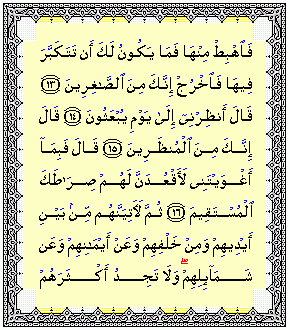 فَٱهْبِطْ مِنْهَا فَمَا يَكُونُ لَكَ أَن تَتَكَبَّرَ
فِيهَا فَٱخْرُجْ إِنَّكَ مِنَ ٱلصَّٰغِرِينَ ١٣
قَالَ أَنظِرْنِىٓ إِلَىٰ يَوْمِ يُبْعَثُونَ ١٤ قَالَ
إِنَّكَ مِنَ ٱلْمُنظَرِينَ ١٥ قَالَ فَبِمَآ
أَغْوَيْتَنِى لَأَقْعُدَنَّ لَهُمْ صِرَٰطَكَ
ٱلْمُسْتَقِيمَ ١٦ ثُمَّ لَءَاتِيَنَّهُم مِّنۢ بَيْنِ
أَيْدِيهِمْ وَمِنْ خَلْفِهِمْ وَعَنْ أَيْمَٰنِهِمْ وَعَن
شَمَآئِلِهِمْ ۖ وَلَا تَجِدُ أَكْثَرَهُمْ